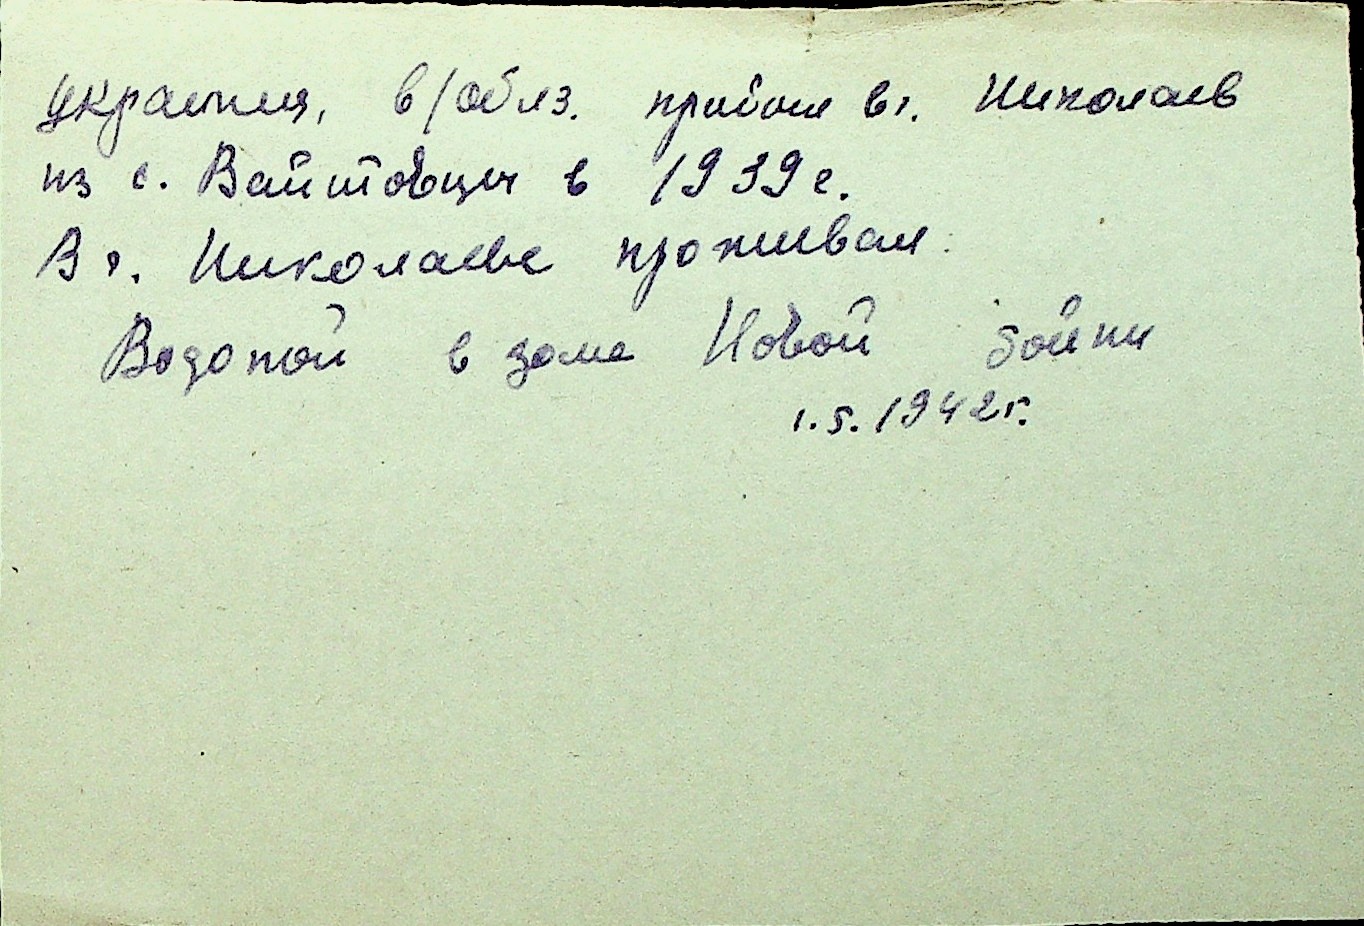 украинц, в/обяз. прибыл в г. Николаев
из с. Вайтовцы в 1939 г.
В г. Николаеве проживал:
Водопой в доме Новой бойни
1.5.1942 г.